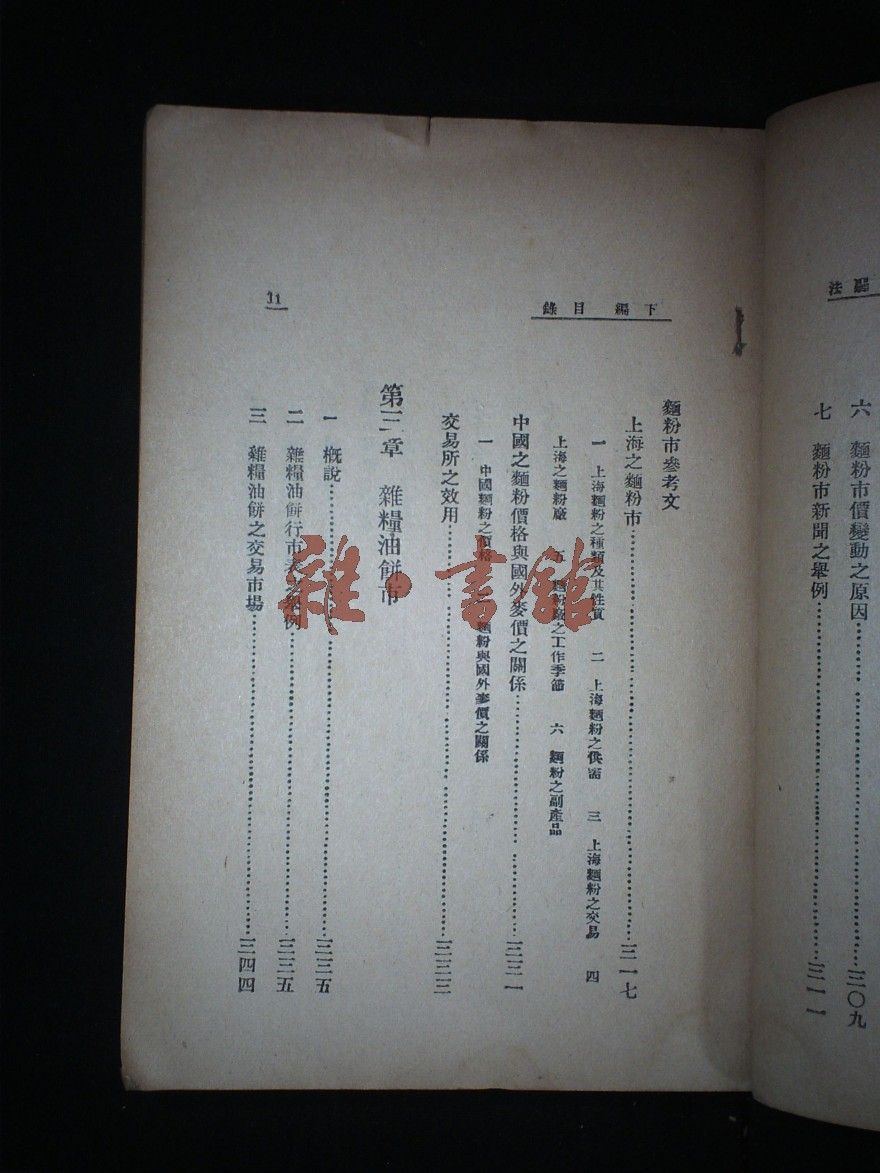 法
六 麵粉市價變動之原因……三〇九
七 麵粉市新聞之舉例……三一一
下編 目錄
11
麵粉市參考文
上海之麵粉市……三一七
一 上海麵粉之種類及其性質 二 上海麵粉之供需 三 上海麵粉之交易 四
上海之麵粉廠 五 麵粉廠之工作季節 六 麵粉之副產品
中國之麵粉價格與國外麥價之關係……三三一
一 中國麵粉之價格 二 麵粉與國外麥價之關係
交易所之效用……三三三
第三章 雜糧油餅市
一 概說……三三五
二 雜糧油餅行市表之舉例……三三五
三 雜糧油餅之交易市場……三四四
雜·書館